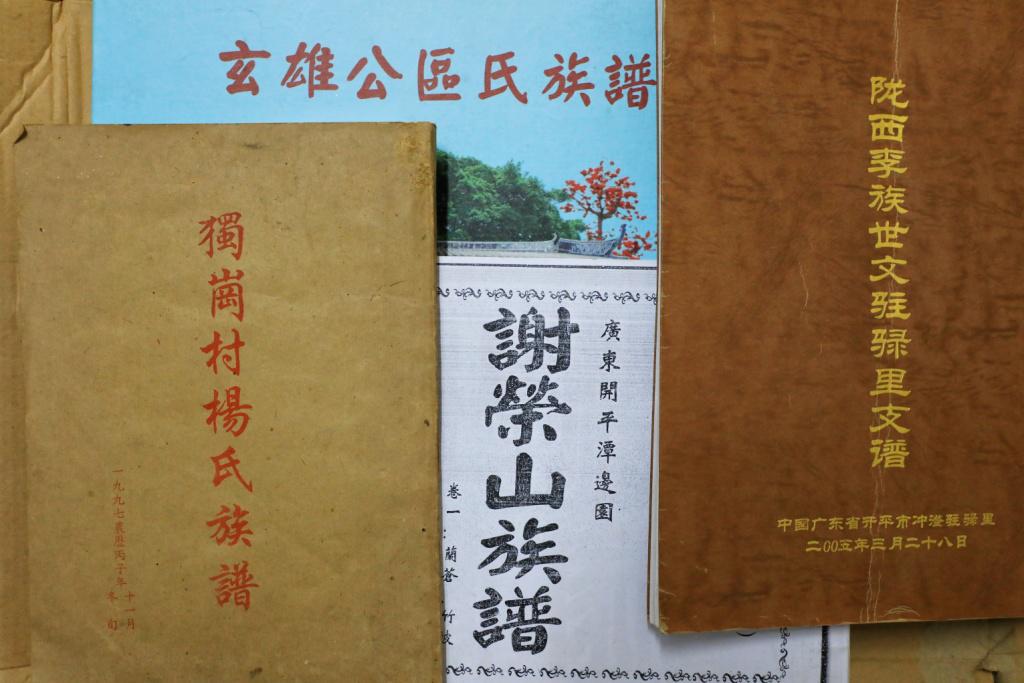 玄雄公區氏族譜
獨崗村楊氏族譜
一九九七農曆丙子年十一月
冬訂
廣東開平潭邊園
謝榮山族譜
卷一：蘭蒼 竹坡
陇西李族世文驻骒里支谱
中国广东省开平市冲澄驻骒里
二00五年三月二十八日